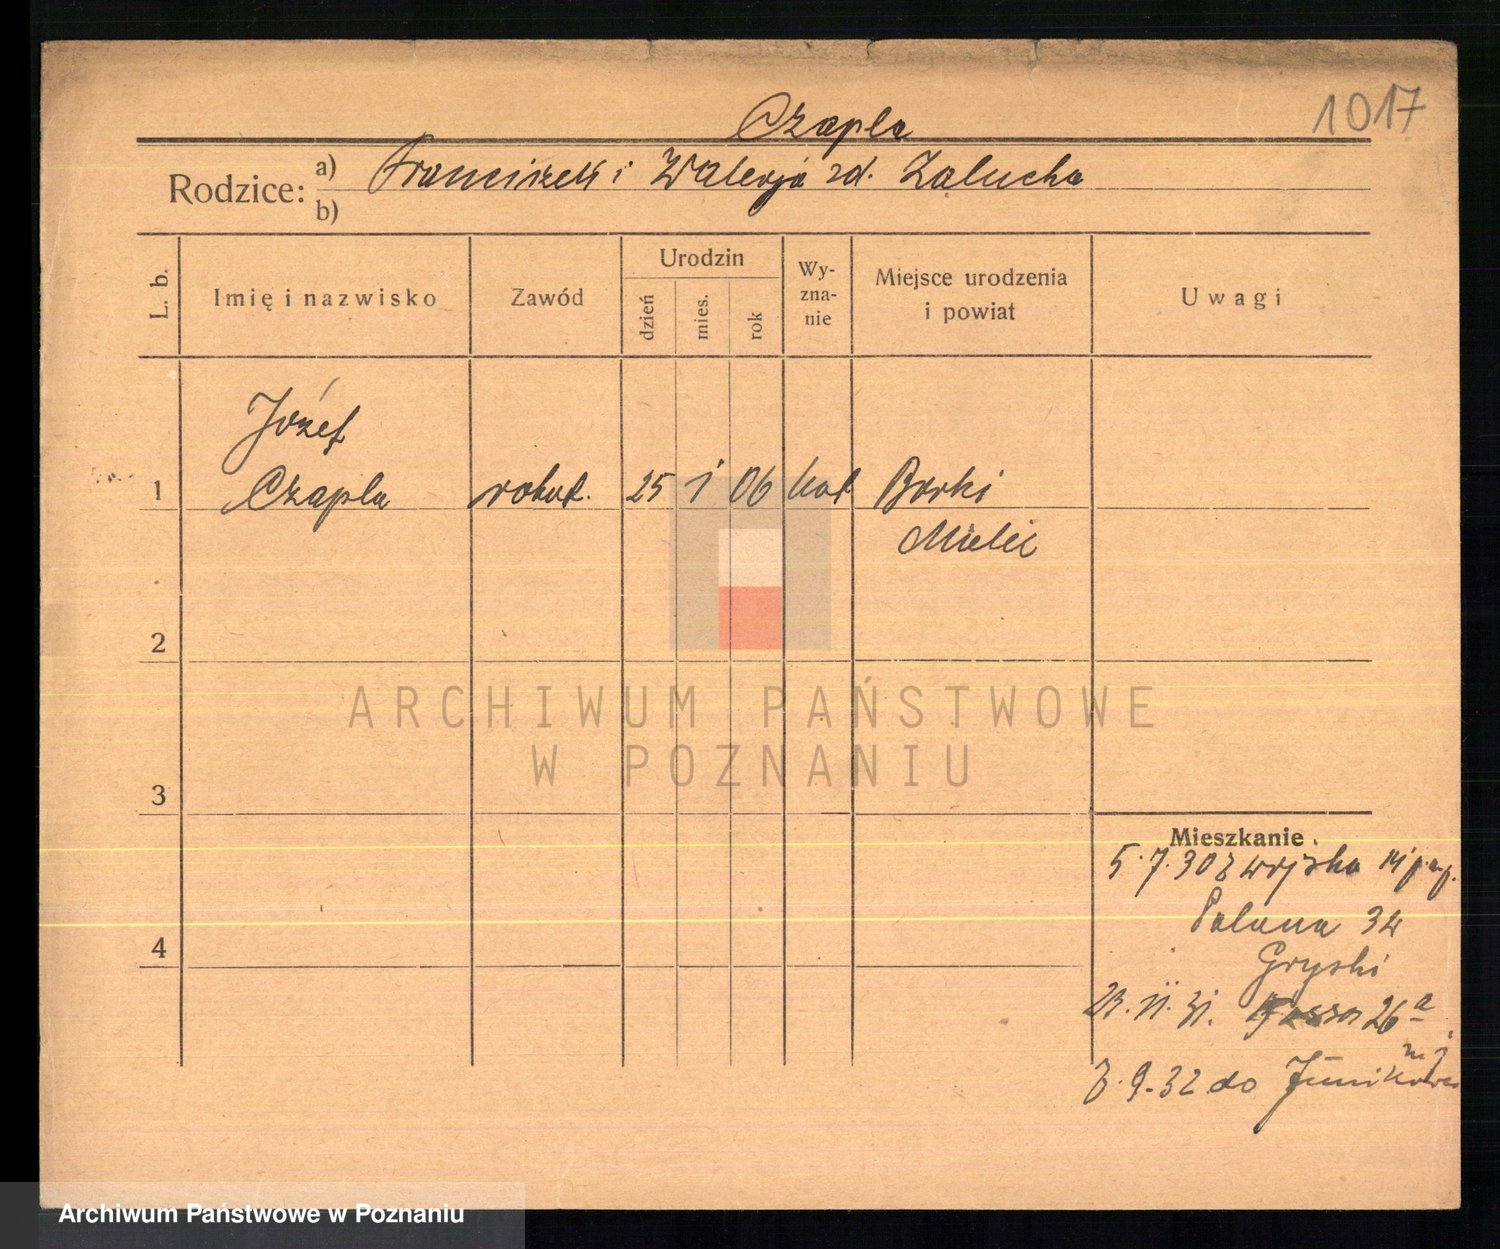 1017
Czapla
Rodzice:
a) Franciszek i Walerja zd. Załucka
b)
L. b.
Imię i nazwisko
Zawód
Urodzin
dzień
mies.
rok
Wy-
zna-
nie
Miejsce urodzenia
i powiat
Uwagi
Józef
1 Czapla robot. 25 1 06 kat Borki
Mielec
2
3
4
Mieszkanie.
5.7.30 z wojska 14 p.a.p.
Polana 34
Gryski
23.11.31. 26a
3.9.32 do Junikowo
ARCHIWUM PAŃSTWOWE
W POZNANIU
Archiwum Państwowe w Poznaniu